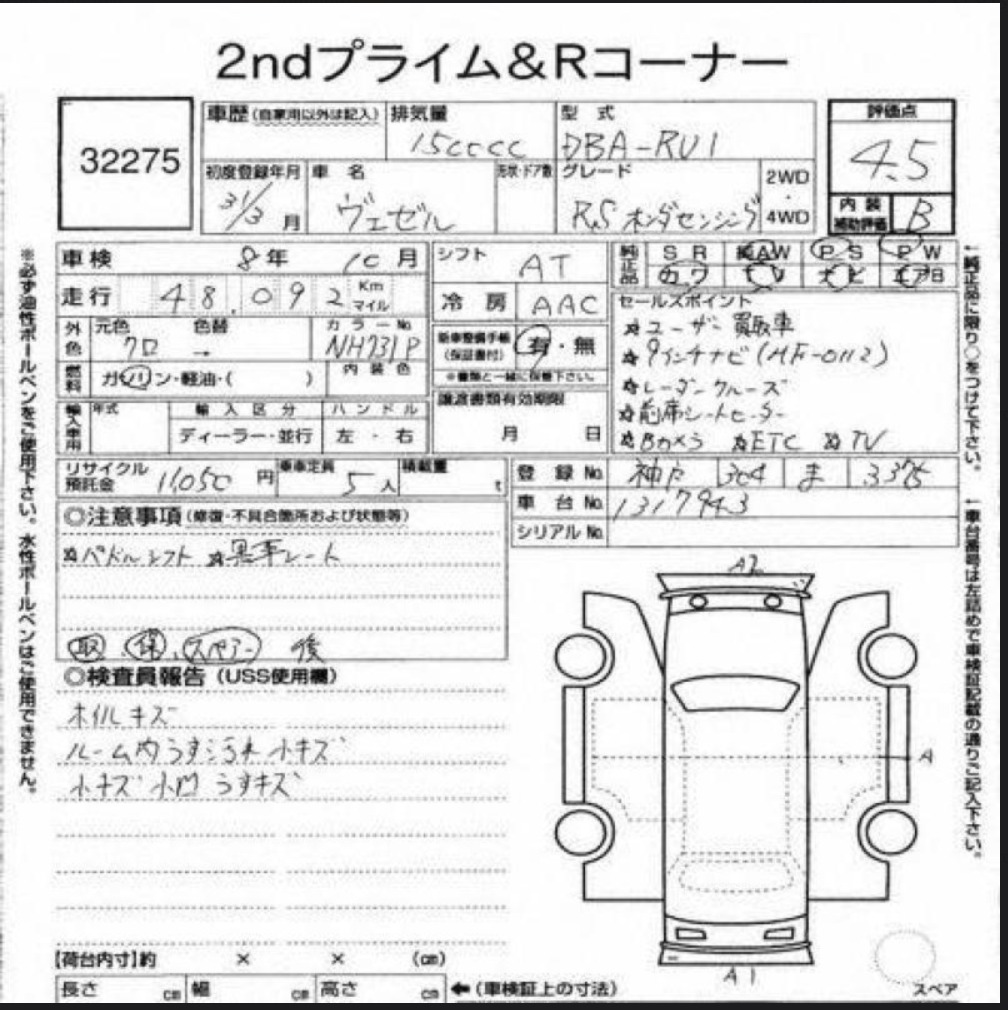 2ndプライム&Rコーナー
32275
車歴(自家用以外は記入)
排気量
15cccc
型式
DBA-RU1
評価点
4.5
初度登録年月
31/3月
車名
ヴェゼル
形状・ドア数
グレード
RSホンダセンシング
2WD
・
4WD
内装
補助評価
B
車検 8年 10月
走行 48,092 Km マイル
シフト AT
冷房 AAC
純正品
SR 純AW PS PW
カワ ナビ エアB
外色
元色 クロ
色替 →
カラーNo. NH731P
燃料 ガソリン・軽油・( )
内装色
新車整備手帳(保証書付) 有・無
※書類と一緒に保管下さい。
セールスポイント
☆ユーザー買取車
☆9インチナビ(MF-0112)
☆レーダークルーズ
☆前席シートヒーター
☆Bカメラ ☆ETC ☆TV
輸入車用
年式
輸入区分
ディーラー・並行
ハンドル
左・右
譲渡書類有効期限
月 日
リサイクル預託金 11,050円
乗車定員 5人
積載量 t
登録No. 神戸 304 ま 3375
車台No. 1317943
シリアルNo.
◎注意事項(修復・不具合箇所および状態等)
☆パドルシフト ☆黒革シート
取 . 保 . スペアー 後
◎検査員報告(USS使用欄)
ホイルキズ
ルーム内うす汚れ 小キズ
小キズ 小凹 うすキズ
A2
A
A1
スペア
【荷台内寸】約 × × (cm)
長さ cm 幅 cm 高さ cm
←(車検証上の寸法)
※必ず油性ボールペンをご使用下さい。水性ボールペンはご使用できません。
↑純正品に限り○をつけて下さい。
↑車台番号は左詰めで車検証記載の通りご記入下さい。